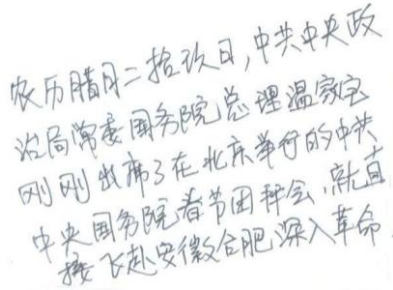 农历腊月二拾玖日,中共中央政
治局常委国务院总理温家宝
刚刚出席了在北京举行的中共
中央国务院春节团拜会,就直
接飞赴安徽合肥深入革命